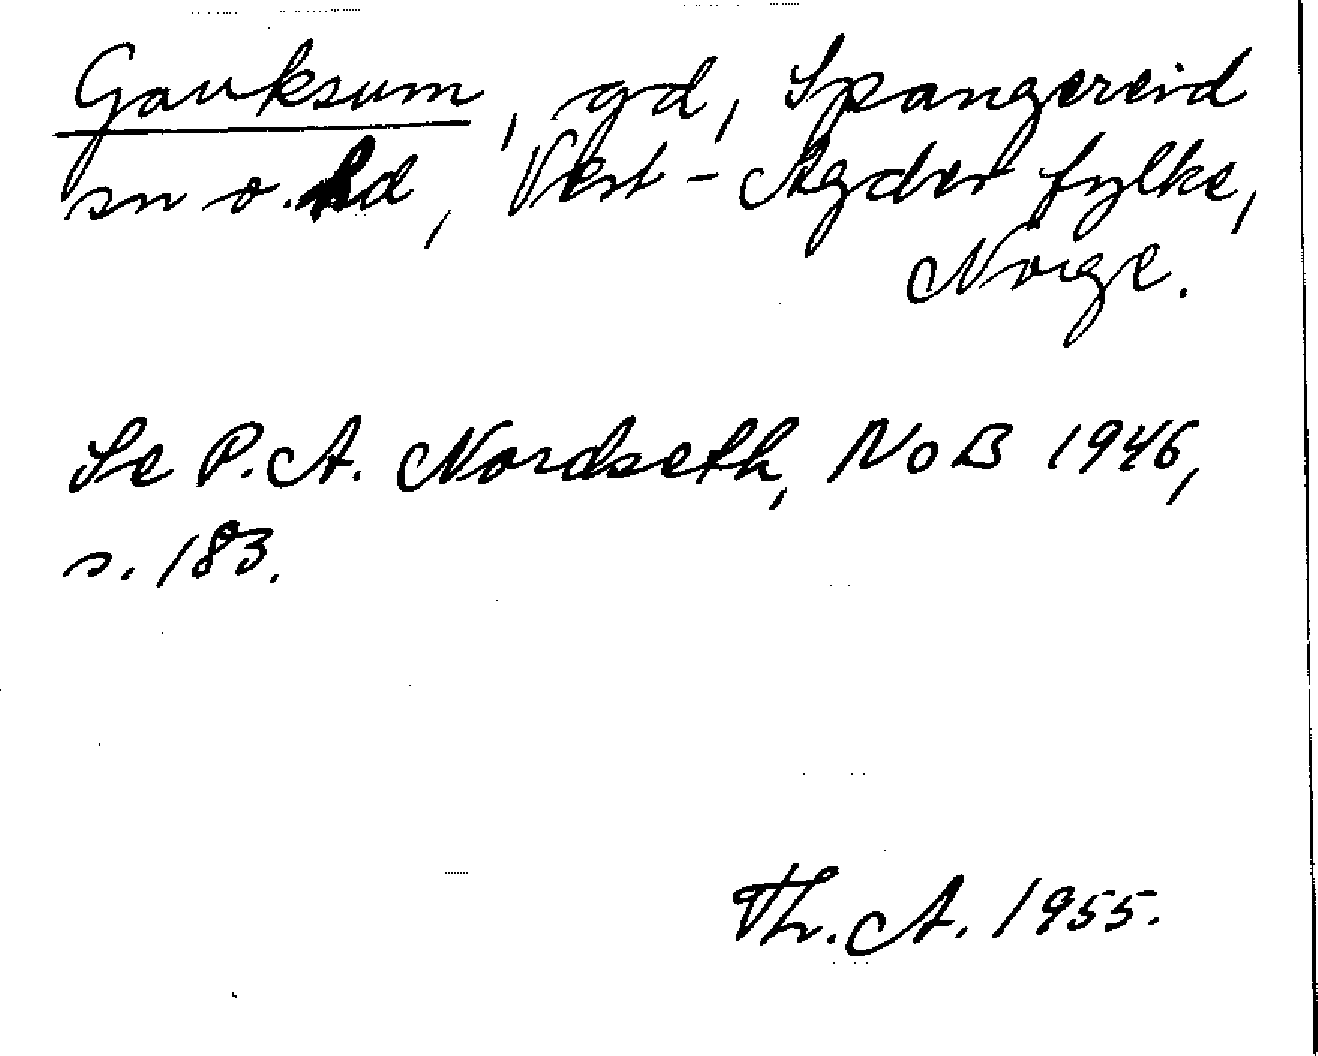 Gauksum, gd, Spangereid
sn o. hd, Vest-Agder fylke,
Norge.
Se P. A. Nordseth, NoB 1946,
s. 183.
Th. A. 1955.